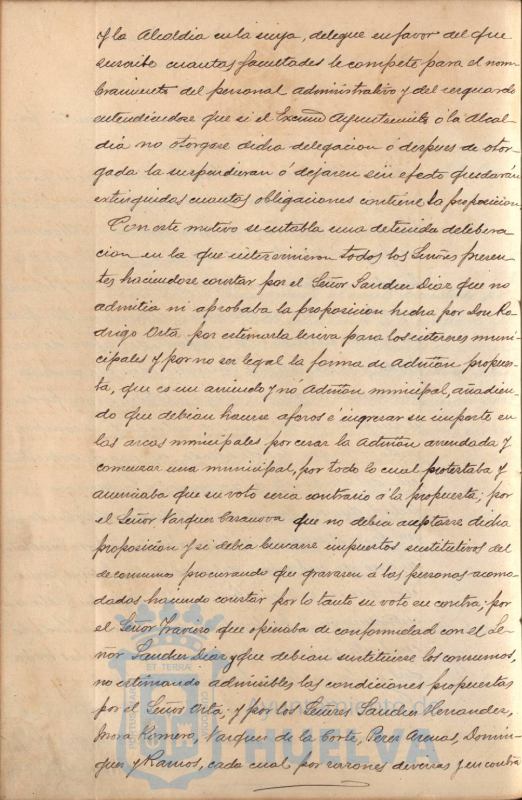 y la Alcaldia en la suya, delegue en favor del que
suscribe cuantas facultades le compete para el nom
bramiento del personal administrativo y del resguardo
entendiendose que si el Excmo Ayuntamiento ó la Alcal-
dia no otorgase dicha delegacion ó despues de otor-
gada la suspendieran ó dejaren sin efecto quedarán
extinguidas cuantas obligaciones contiene la proposicion
Con este motivo se entabla una detenida delibera-
cion en la que intervinieron todos los Señores presen-
tes haciendose constar por el Señor Sanchez Diaz que no
admitia ni aprobaba la proposicion hecha por Don Ro-
drigo Orta por estimarla lesiva para los intereses muni-
cipales y por no ser legal la forma de Admón propues-
ta, que es un arriendo y nó Admón municipal, añadien-
do que debian hacerse aforos é ingresar su importe en
las arcas municipales por cesar la Admón arrendada y
comenzar una municipal, por todo lo cual protestaba y
anunciaba que su voto seria contrario á la propuesta; por
el Señor Vazquez Casanova que no debia aceptarse dicha
proposicion y si debia buscarse impuestos sustitutivos del
de consumo procurando que gravasen á las personas acomo-
dadas haciendo constar por lo tanto su voto en contra; por
el Señor Travieso que opinaba de conformidad con el Se-
ñor Sanchez Diaz y que debian sustituirse los consumos,
no estimando admisibles las condiciones propuestas
por el Señor Orta; y por los Señores Sanchez Hernandez,
Mora Romero, Vazquez de la Corte, Perez Arenas, Domin-
guez y Ramos, cada cual por razones diversas y en contra
PORTUS MARIS ET TERRAE CUSTODIA
Ayuntamiento de
HUELVA